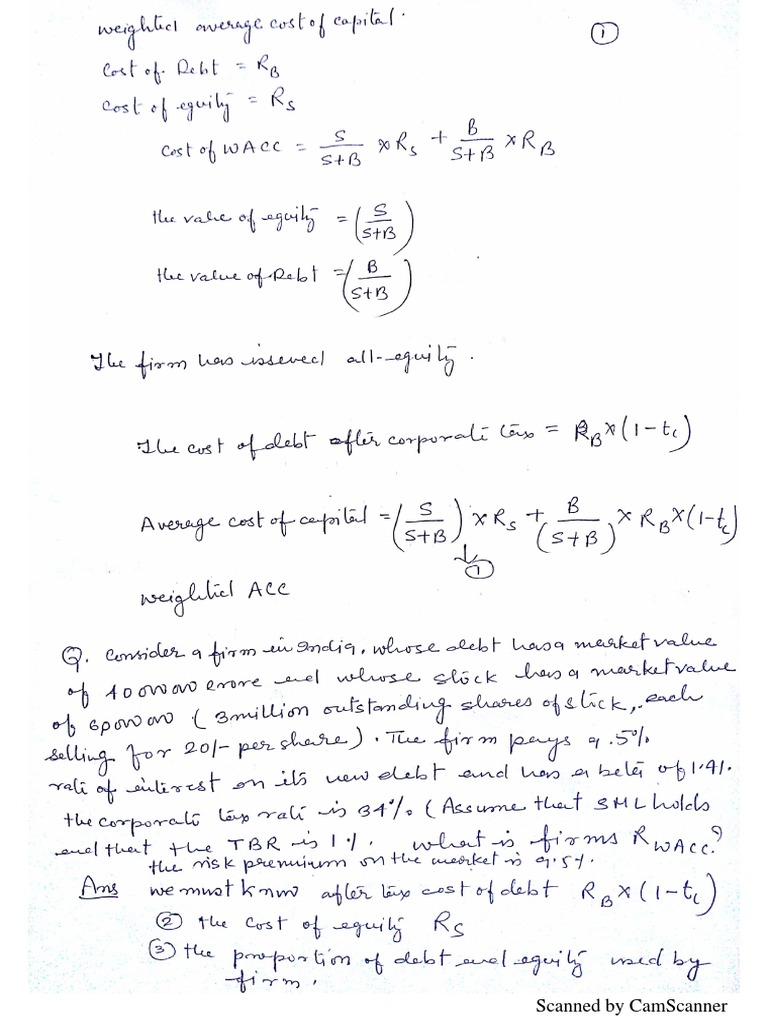 weighted average cost of capital.
①
Cost of Debt = R_B
Cost of equity = R_S
Cost of WACC = S/(S+B) × R_S + B/(S+B) × R_B
the value of equity = (S/(S+B))
the value of Debt = (B/(S+B))
The firm has issued all-equity.
The cost of debt after corporate tax = R_B × (1-t_c)
Average cost of capital = (S/(S+B)) × R_S + (B/(S+B)) × R_B × (1-t_c)
↓
①
weighted ACC
Q. Consider a firm in India, whose debt has a market value
of 40000000 crore and whose stock has a market value
of 60000000 (3million outstanding shares of stick, each
selling for 20/- per share). The firm pays 9.5%
rate of interest on its new debt and has a beta of 1.41.
the corporate tax rate is 34% (Assume that SML holds
and that the TBR is 1%. what is firms R_WACC?
the risk premium on the market is 9.5%.
Ans we must know after tax cost of debt R_B × (1-t_c)
② the cost of equity R_S
③ the proportion of debt and equity used by
firm.
Scanned by CamScanner